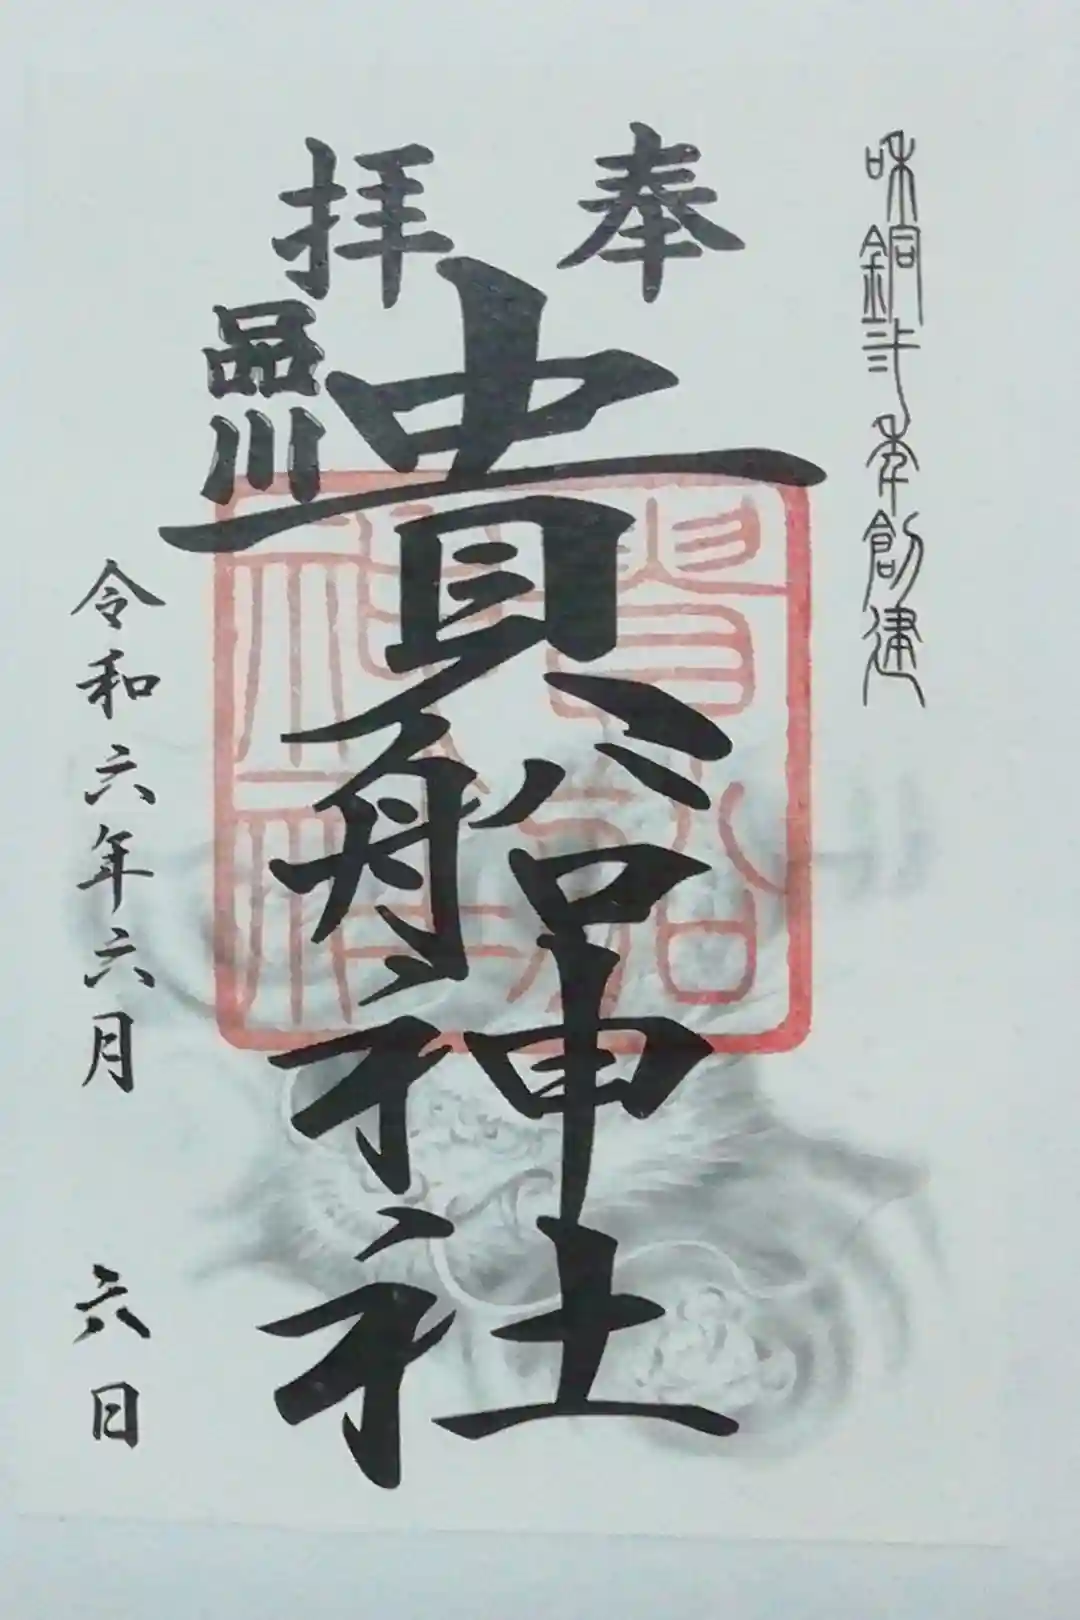 和銅弐年創建
奉拝
貴船神社
品川
令和六年六月六日
貴船神社